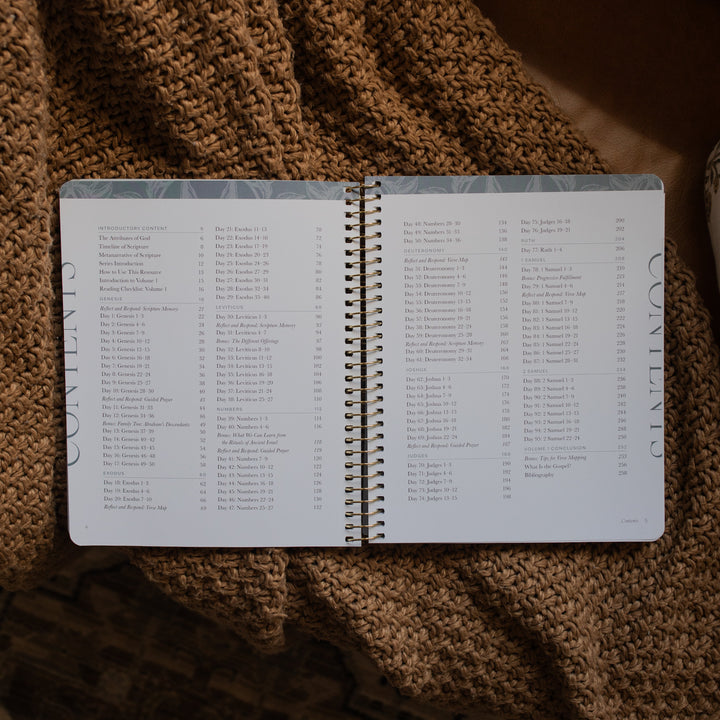 CONTENTS
INTRODUCTORY CONTENT 5
The Attributes of God 6
Timeline of Scripture 8
Metanarrative of Scripture 10
Series Introduction 12
How to Use This Resource 13
Introduction to Volume 1 15
Reading Checklist: Volume 1 16
GENESIS 18
Reflect and Respond: Scripture Memory 21
Day 1: Genesis 1–3 22
Day 2: Genesis 4–6 24
Day 3: Genesis 7–9 26
Day 4: Genesis 10–12 28
Day 5: Genesis 13–15 30
Day 6: Genesis 16–18 32
Day 7: Genesis 19–21 34
Day 8: Genesis 22–24 36
Day 9: Genesis 25–27 38
Day 10: Genesis 28–30 40
Reflect and Respond: Guided Prayer 43
Day 11: Genesis 31–33 44
Day 12: Genesis 34–36 46
Bonus: Family Tree: Abraham's Descendants 49
Day 13: Genesis 37–39 50
Day 14: Genesis 40–42 52
Day 15: Genesis 43–45 54
Day 16: Genesis 46–48 56
Day 17: Genesis 49–50 58
EXODUS 60
Day 18: Exodus 1–3 62
Day 19: Exodus 4–6 64
Day 20: Exodus 7–10 66
Reflect and Respond: Verse Map 69
Day 21: Exodus 11–13 70
Day 22: Exodus 14–16 72
Day 23: Exodus 17–19 74
Day 24: Exodus 20–23 76
Day 25: Exodus 24–26 78
Day 26: Exodus 27–29 80
Day 27: Exodus 30–31 82
Day 28: Exodus 32–34 84
Day 29: Exodus 35–40 86
LEVITICUS 88
Day 30: Leviticus 1–3 90
Reflect and Respond: Scripture Memory 93
Day 31: Leviticus 4–7 94
Bonus: The Different Offerings 97
Day 32: Leviticus 8–10 98
Day 33: Leviticus 11–12 100
Day 34: Leviticus 13–15 102
Day 35: Leviticus 16–18 104
Day 36: Leviticus 19–20 106
Day 37: Leviticus 21–24 108
Day 38: Leviticus 25–27 110
NUMBERS 112
Day 39: Numbers 1–3 114
Day 40: Numbers 4–6 116
Bonus: What We Can Learn from
the Rituals of Ancient Israel 118
Reflect and Respond: Guided Prayer 119
Day 41: Numbers 7–9 120
Day 42: Numbers 10–12 122
Day 43: Numbers 13–15 124
Day 44: Numbers 16–18 126
Day 45: Numbers 19–21 128
Day 46: Numbers 22–24 130
Day 47: Numbers 25–27 132
Day 48: Numbers 28–30 134
Day 49: Numbers 31–33 136
Day 50: Numbers 34–36 138
DEUTERONOMY 140
Reflect and Respond: Verse Map 143
Day 51: Deuteronomy 1–3 144
Day 52: Deuteronomy 4–6 146
Day 53: Deuteronomy 7–9 148
Day 54: Deuteronomy 10–12 150
Day 55: Deuteronomy 13–15 152
Day 56: Deuteronomy 16–18 154
Day 57: Deuteronomy 19–21 156
Day 58: Deuteronomy 22–24 158
Day 59: Deuteronomy 25–28 160
Reflect and Respond: Scripture Memory 163
Day 60: Deuteronomy 29–31 164
Day 61: Deuteronomy 32–34 166
JOSHUA 168
Day 62: Joshua 1–3 170
Day 63: Joshua 4–6 172
Day 64: Joshua 7–9 174
Day 65: Joshua 10–12 176
Day 66: Joshua 13–15 178
Day 67: Joshua 16–18 180
Day 68: Joshua 19–21 182
Day 69: Joshua 22–24 184
Reflect and Respond: Guided Prayer 187
JUDGES 188
Day 70: Judges 1–3 190
Day 71: Judges 4–6 192
Day 72: Judges 7–9 194
Day 73: Judges 10–12 196
Day 74: Judges 13–15 198
Day 75: Judges 16–18 200
Day 76: Judges 19–21 202
RUTH 204
Day 77: Ruth 1–4 206
1 SAMUEL 208
Day 78: 1 Samuel 1–3 210
Bonus: Progressive Fulfillment 213
Day 79: 1 Samuel 4–6 214
Reflect and Respond: Verse Map 217
Day 80: 1 Samuel 7–9 218
Day 81: 1 Samuel 10–12 220
Day 82: 1 Samuel 13–15 222
Day 83: 1 Samuel 16–18 224
Day 84: 1 Samuel 19–21 226
Day 85: 1 Samuel 22–24 228
Day 86: 1 Samuel 25–27 230
Day 87: 1 Samuel 28–31 232
2 SAMUEL 234
Day 88: 2 Samuel 1–3 236
Day 89: 2 Samuel 4–6 238
Day 90: 2 Samuel 7–9 240
Day 91: 2 Samuel 10–12 242
Day 92: 2 Samuel 13–15 244
Day 93: 2 Samuel 16–18 246
Day 94: 2 Samuel 19–21 248
Day 95: 2 Samuel 22–24 250
VOLUME 1 CONCLUSION 252
Bonus: Tips for Verse Mapping 253
What Is the Gospel? 256
Bibliography 258
CONTENTS
4
Contents 5